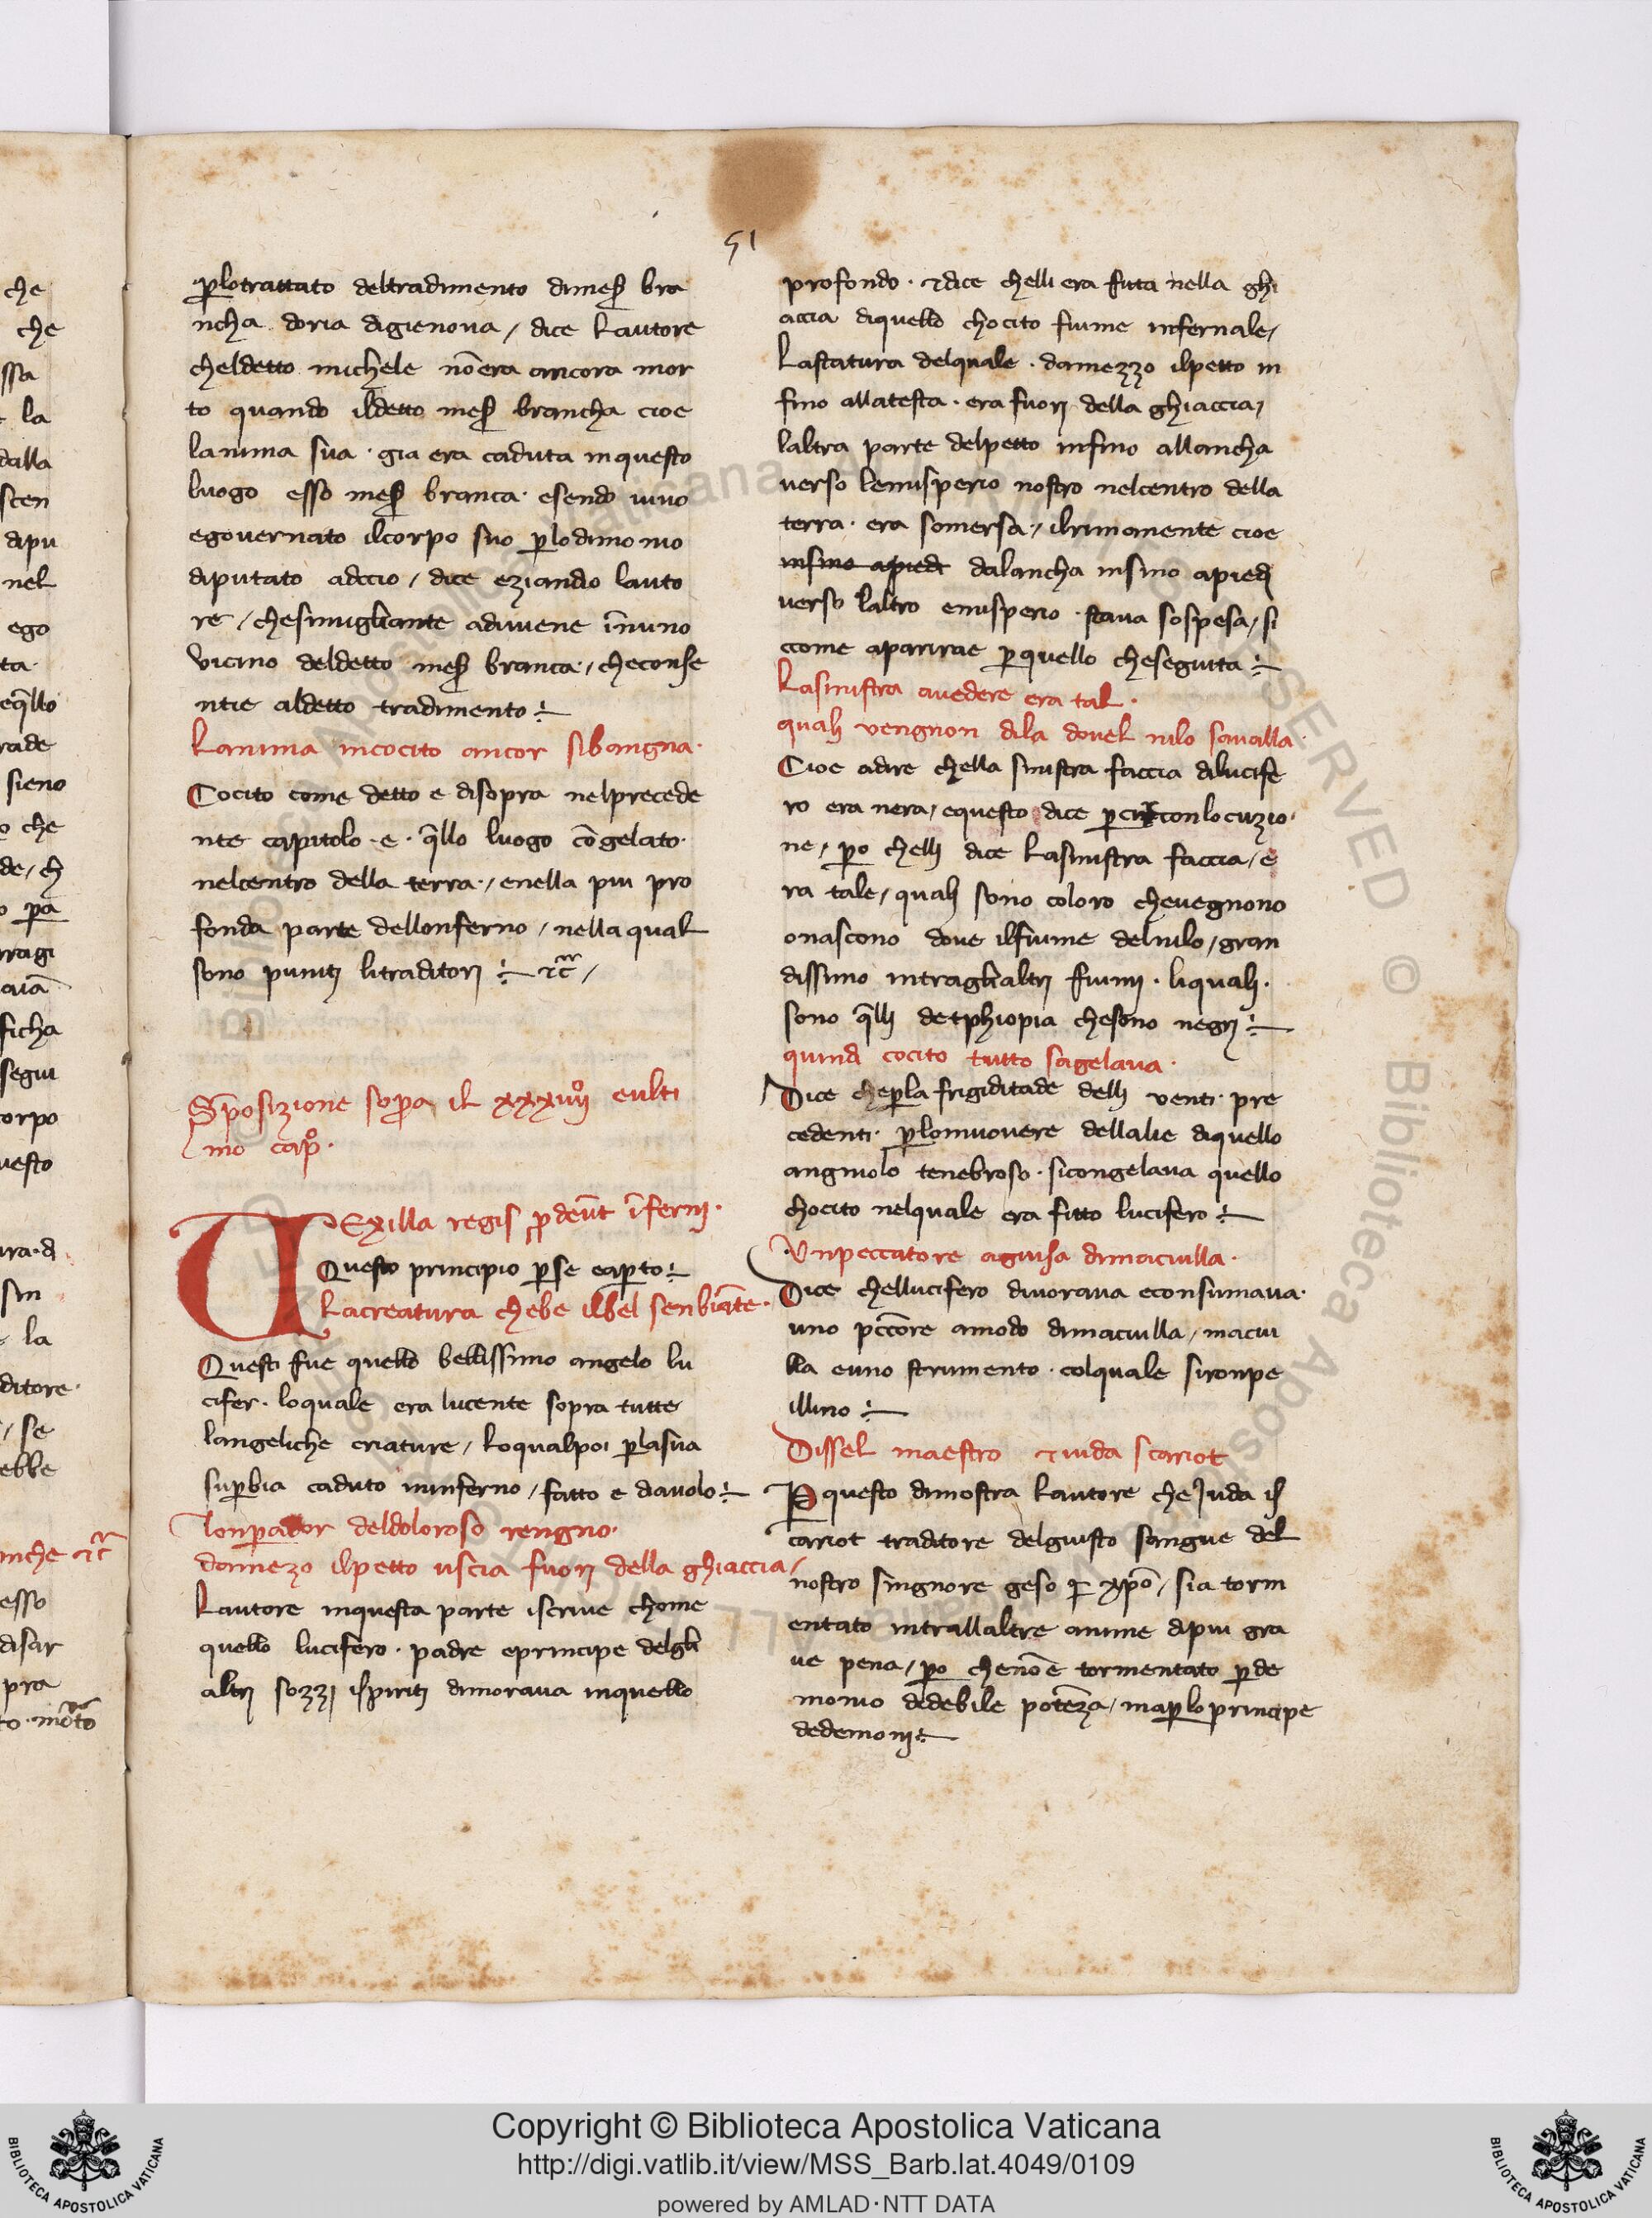 51
ꝑlotrattato deltradimento dimeß bra
ncha doria digienova / dice Lautore
cheldetto michele nōera ancora mor
to quando ildetto meß brancha cioe
lanima sua · gia era caduta inquesto
luogo esso meß branca · esendo vivo
egovernato ilcorpo suo ꝑlodimonio
diputato adccio / dice eziando lauto
re / chesimigliante adivene īnuno
Vicino deldetto meß branca · / checonse
ntie aldetto tradimento
Lanima incocito ancor sibangna ·
Cocito come detto e disopra nelprecede
nte capitolo · e · q̄llo luogo cōgelato ·
nelcentro della terra · / enella piu pro
fonda parte dellonferno / nella qual
sono puniti litraditori ⁊c̄ /
Sposizione sopra il xxxiiijº eulti
mo capº ·
VExilla regis ꝓdeūt īferni ·
Questo principio ꝑse eaꝑto
Lacreatura chebe ilbel senbiāte ·
Questi fue quello bellissimo angelo lu
cifer · loquale era lucente sopra tutte
langeliche criature / Loqualpoi ꝑlasua
suꝑbia caduto ininferno / fatto e diavolo
Lonꝑador deldoloroso rengno ·
damezo ilpetto uscia fuori della ghiaccia /
Lautore inquesta parte iscrive chome
quello lucifero · padre eprincipe delgli
altri sozzi ispiriti dimorava inquello
profondo · ⁊dice chelli era fitta nella ghi
accia diquello chocito fiume infernale /
Lastatura delquale · damezzo ilpetto in
fino allatesta · era fuori della ghiaccia /
laltra parte delpetto infino allancha
verso lemisperio nostro nelcentro della
terra · era somersa · / ilrimanente cioe
infino apiedi dalancha insino apiedi
verso laltro emisperio · stava sospesa / si
ccome aparirae ꝑquello cheseguita
Lasinistra avedere era tal ·
quali vengnon dila dovel nilo savalla ·
Cioe adire chella sinistra faccia dilucife
ro era nera / equesto dice ꝑcirconlocuzio
ne / ꝑo chelli dice Lasinistra faccia / e
ra tale / quali sono coloro chevegnono
onascono dove ilfiume delnilo / gran
dissimo intraglialtri fiumi · liquali ·
sono q̄lli detphiopia chesono negri
quindi cocito tutto sagelava ·
Dice cheꝑla frigiditade delli venti · pre
cedenti · ꝑlomuovere dellalie diquello
angniolo tenebroso · sicongelava quello
chocito nelquale era fitto lucifero
Unpeccatore aguisa dimaciulla ·
Dice chellucifero divorava econsumava ·
uno pccōre amodo dimaciulla / maciu
lla euno strumento · colquale sironpe
illino
Dissel maestro ⁊iuda scariot
P questo dimostra Lautore che Juda is
cariot traditore delgiusto sangue del
nostro singnore geso xp̄o / sia torm
entato intrallaltre anime dipiu gra
ve pena / ꝑo chenōe tormentato ꝑde
monio dedebile potēza / maꝑloprincipe
dedemonij
Copyright © Biblioteca Apostolica Vaticana
http://digi.vatlib.it/view/MSS_Barb.lat.4049/0109
powered by AMLAD·NTT DATA
BIBLIOTECA APOSTOLICA VATICANA
BIBLIOTECA APOSTOLICA VATICANA